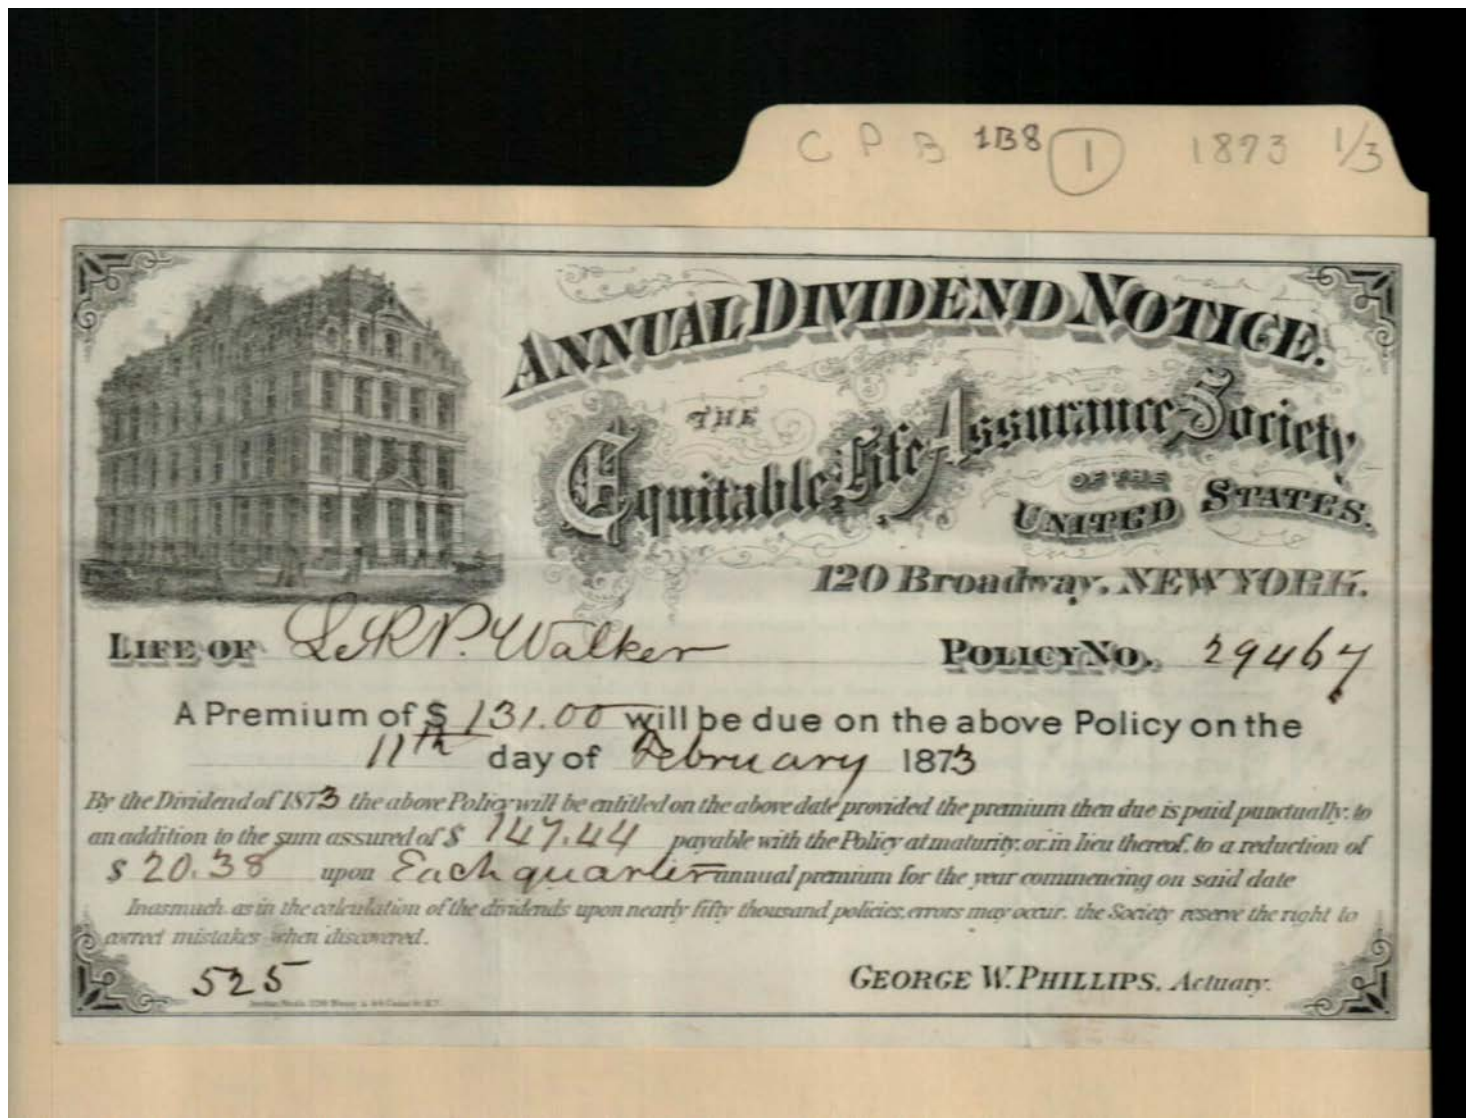 C P B 1B8 1 1873 1/3
ANNUAL DIVIDEND NOTICE.
THE
Equitable Life Assurance Society
OF THE
UNITED STATES.
120 Broadway, NEW YORK.
LIFE OF L. P. Walker POLICY NO. 29467
A Premium of $ 131.00 will be due on the above Policy on the
11th day of February 1873
By the Dividend of 1873 the above Policy will be entitled on the above date provided the premium then due is paid punctually, to
an addition to the sum assured of $ 147.44 payable with the Policy at maturity, or, in lieu thereof, to a reduction of
$ 20.38 upon Each quarter annual premium for the year commencing on said date
Inasmuch, as in the calculation of the dividends upon nearly fifty thousand policies, errors may occur, the Society reserve the right to
correct mistakes when discovered.
525
GEORGE W. PHILLIPS, Actuary.